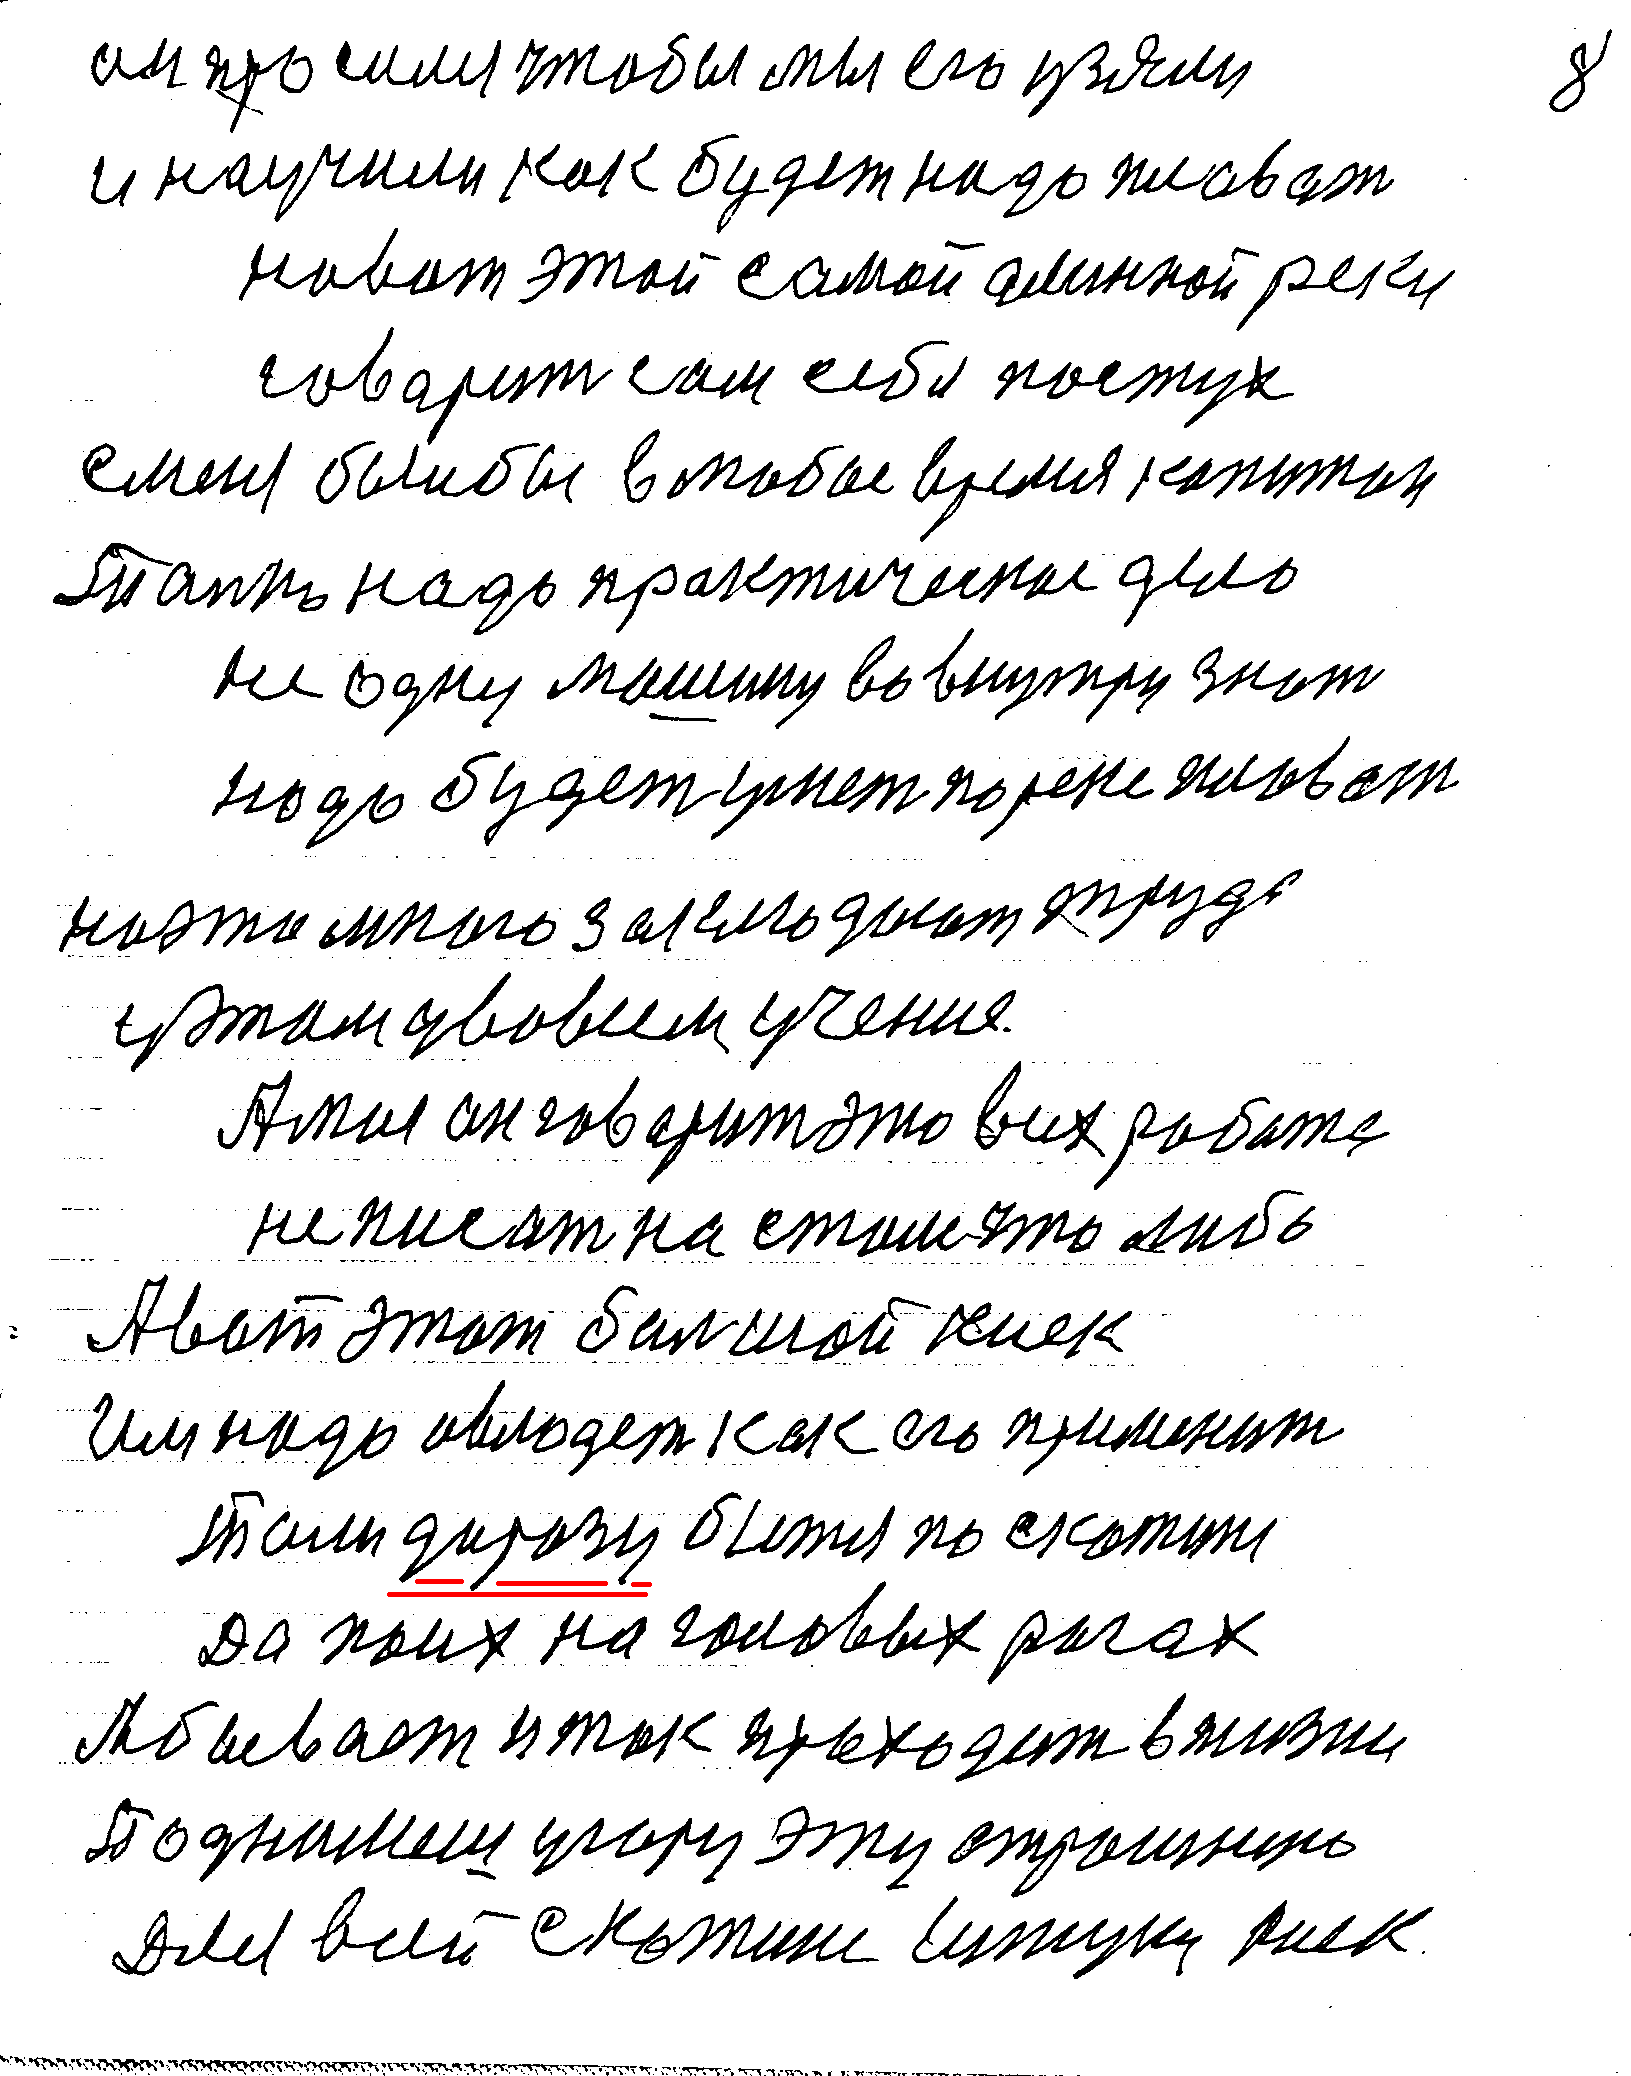 он просил чтобы мы его узяли 8
и научили как будет надо плават
на вот этой самой длинной реки
говарит сам себя постух
с меня был бы в любое время капитан
Тапть надо практическое дело
не одну машину во внутри знат
надо будет умет по реке плават
на это много закладают труда
у этом у во всем учение.
А мы он говарит это в их работа
не писат на столе что либо
А вот этот балшой киек
Им надо овладет как его применит
Тали дорозу бытя по скотине
да по их на головых рогах
А бывает и так проходит в жизни
Поднимеш угору эту страшную
Для всей скотине штуку киек.